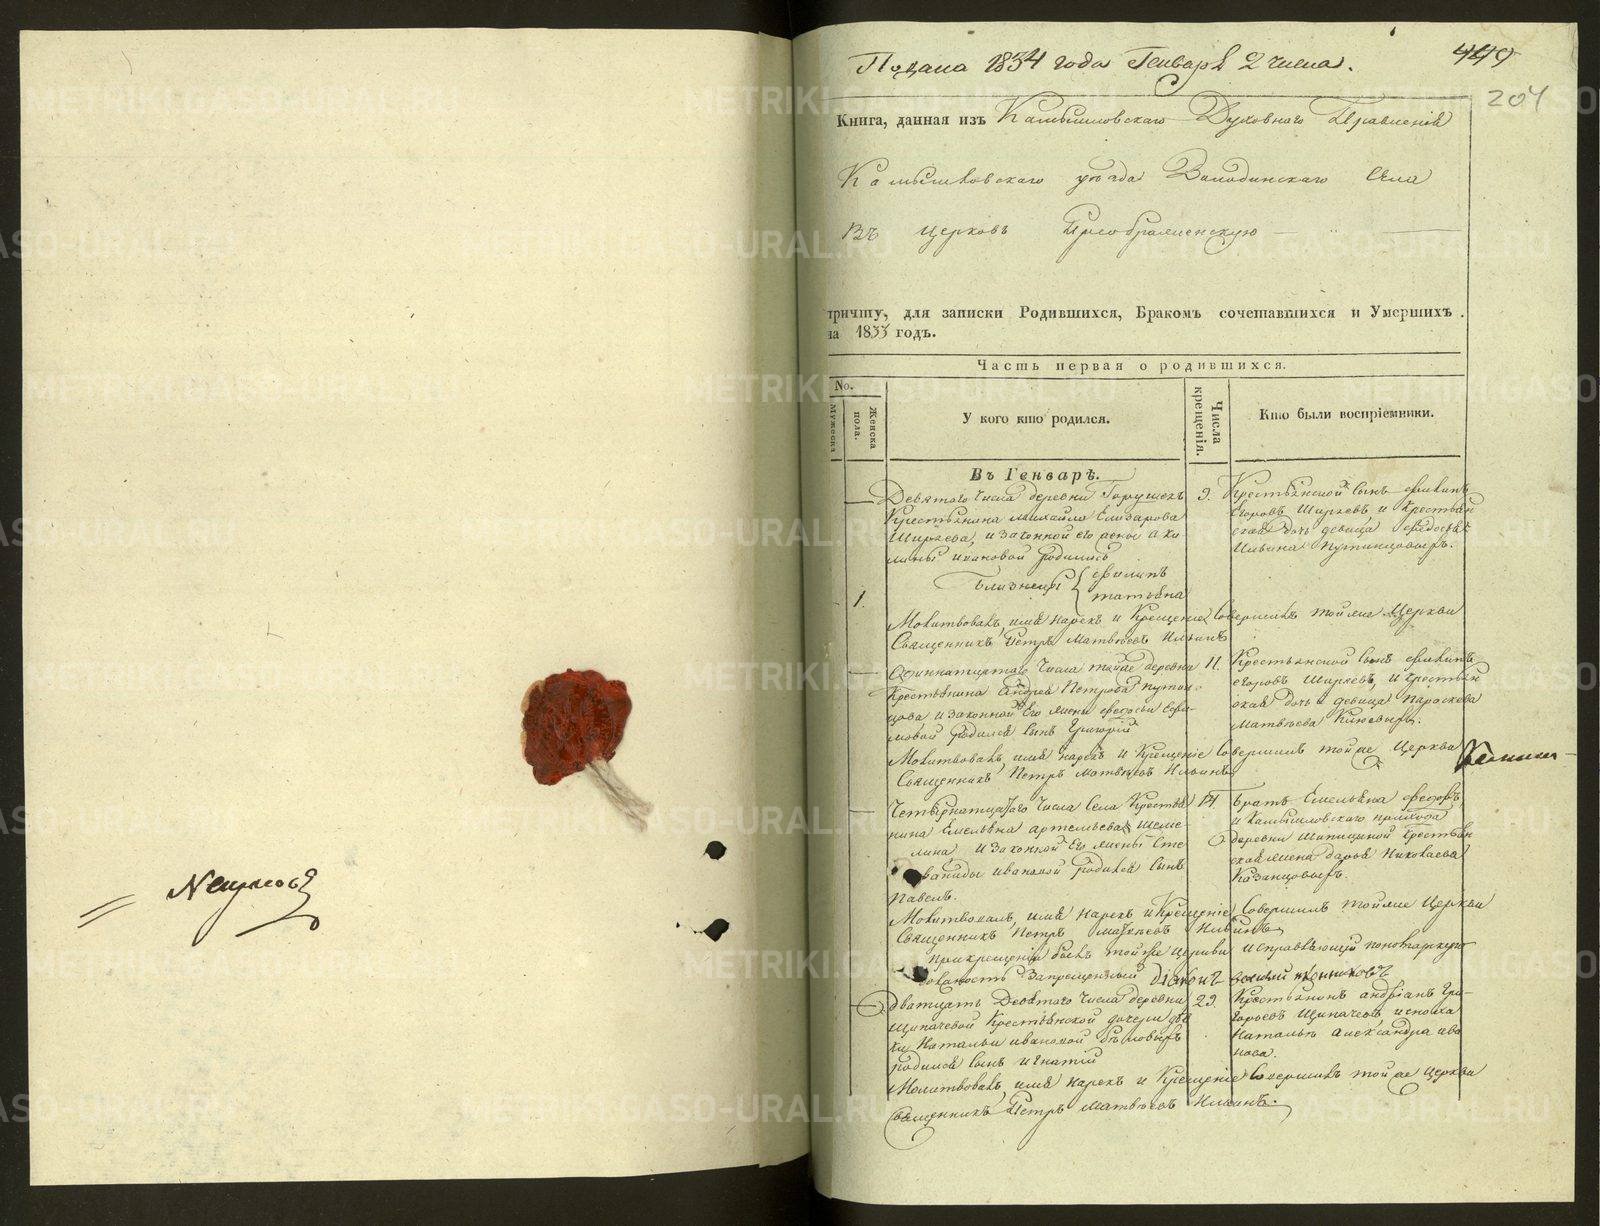 Подана 1834 года Генваря 2 числа.
449
204
Книга, данная изъ Камышловскаго Духовнаго Правленія
Камышловскаго уѣзда Володинскаго Села
Въ церковь Преображенскую
причту, для записки Родившихся, Бракомъ сочетавшихся и Умершихъ
на 1833 годъ.
Часть первая о родившихся.
No.
Мужеска
Женска
пола.
У кого кто родился.
Числа
крещенія.
Кто были воспріемники.
Въ Генварѣ.
Девятого Числа деревни
Крестьянина Михайла Елизарова
Ширяева, и законной его жены Аки
лины Ивановой родились
1.
Близнецы Филипъ
Татьяна
9.
Крестьянской сынъ Филипъ
Егоровъ Ширяевъ и Крестьян
ская дочь девица Федосья
Ильина Путинцовыхъ.
Молитвовалъ, имя нарекъ и Крещеніе Совершилъ тойже Церкви
Священникъ Петръ Матвѣевъ Ильинъ
Одиннатцатаго Числа тойже деревни
Крестьянина Андрея Петрова Путин
цова и законной Его жены Федосьи Ефи
мовой родился сынъ Григорій
11.
Крестьянской сынъ Филипъ
Егоровъ Ширяевъ, и Крестьян
ская дочь девица Параскева
Матвѣева
Молитвовалъ, имя нарекъ и Крещеніе Совершилъ тойже Церкви
Священникъ Петръ Матвѣевъ Ильинъ
Четырнатцатаго Числа Села Крестья
нина Емельяна Артемьева Шеме
лина и законной Его жены Сте
паниды Ивановой родился сынъ
Павелъ.
14.
Братъ Емельяна Федоръ
и Камышловскаго прихода
деревни Шипициной Крестьян
ская жена Дарья Николаева
Казанцовыхъ.
Молитвовалъ, имя нарекъ и Крещеніе Совершилъ тойже Церкви
Священникъ Петръ Матвѣевъ Ильинъ
При крещеніи былъ тойже церкви исправляющій пономарскую
должность Запрещенный Діаконъ
Дватцать Девятаго Числа деревни
Щипачевой Крестьянской дочери дѣв
ки Натальи Ивановой
родился сынъ Игнатій
29.
Крестьянинъ Андріанъ Гри-
горьевъ Щипачевъ и
Наталья Александра Ива
нова.
Молитвовалъ, имя нарекъ и Крещеніе Совершилъ тойже Церкви
Священникъ Петръ Матвѣевъ Ильинъ.
METRIKI.GASO-URAL.RU